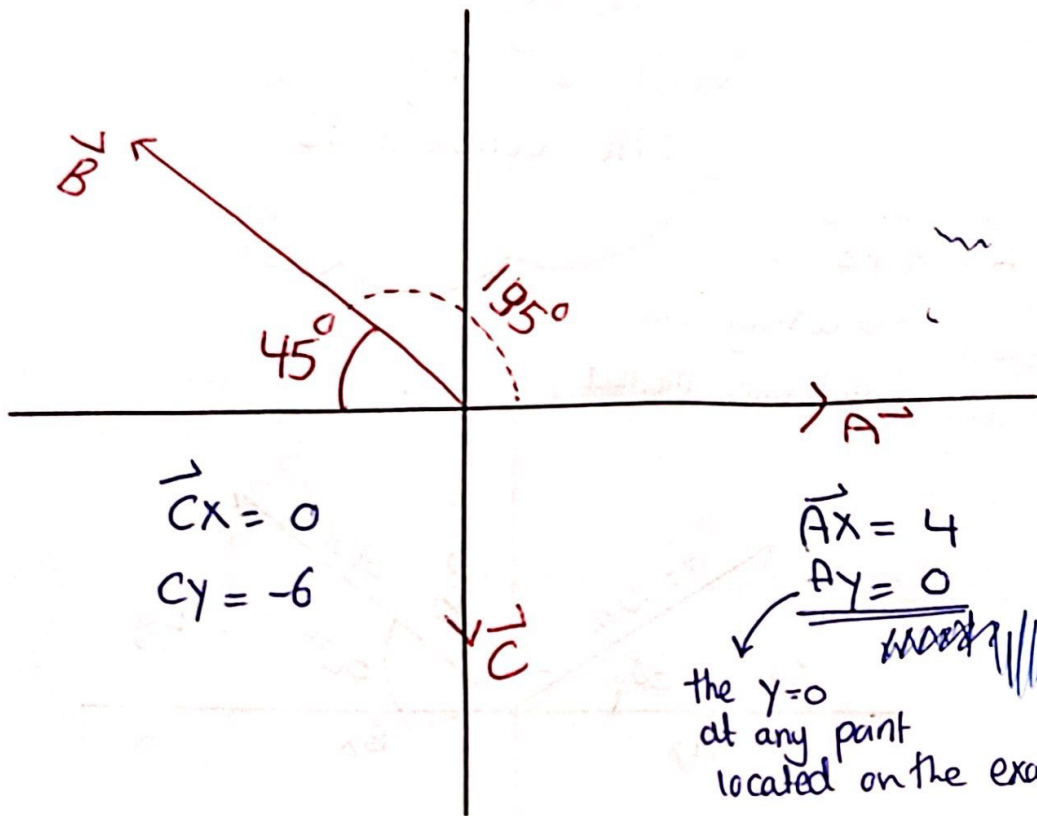 B
195°
45°
A
Cx = 0
Cy = -6
Ax = 4
Ay = 0
C
the y=0
at any point
located on the exa